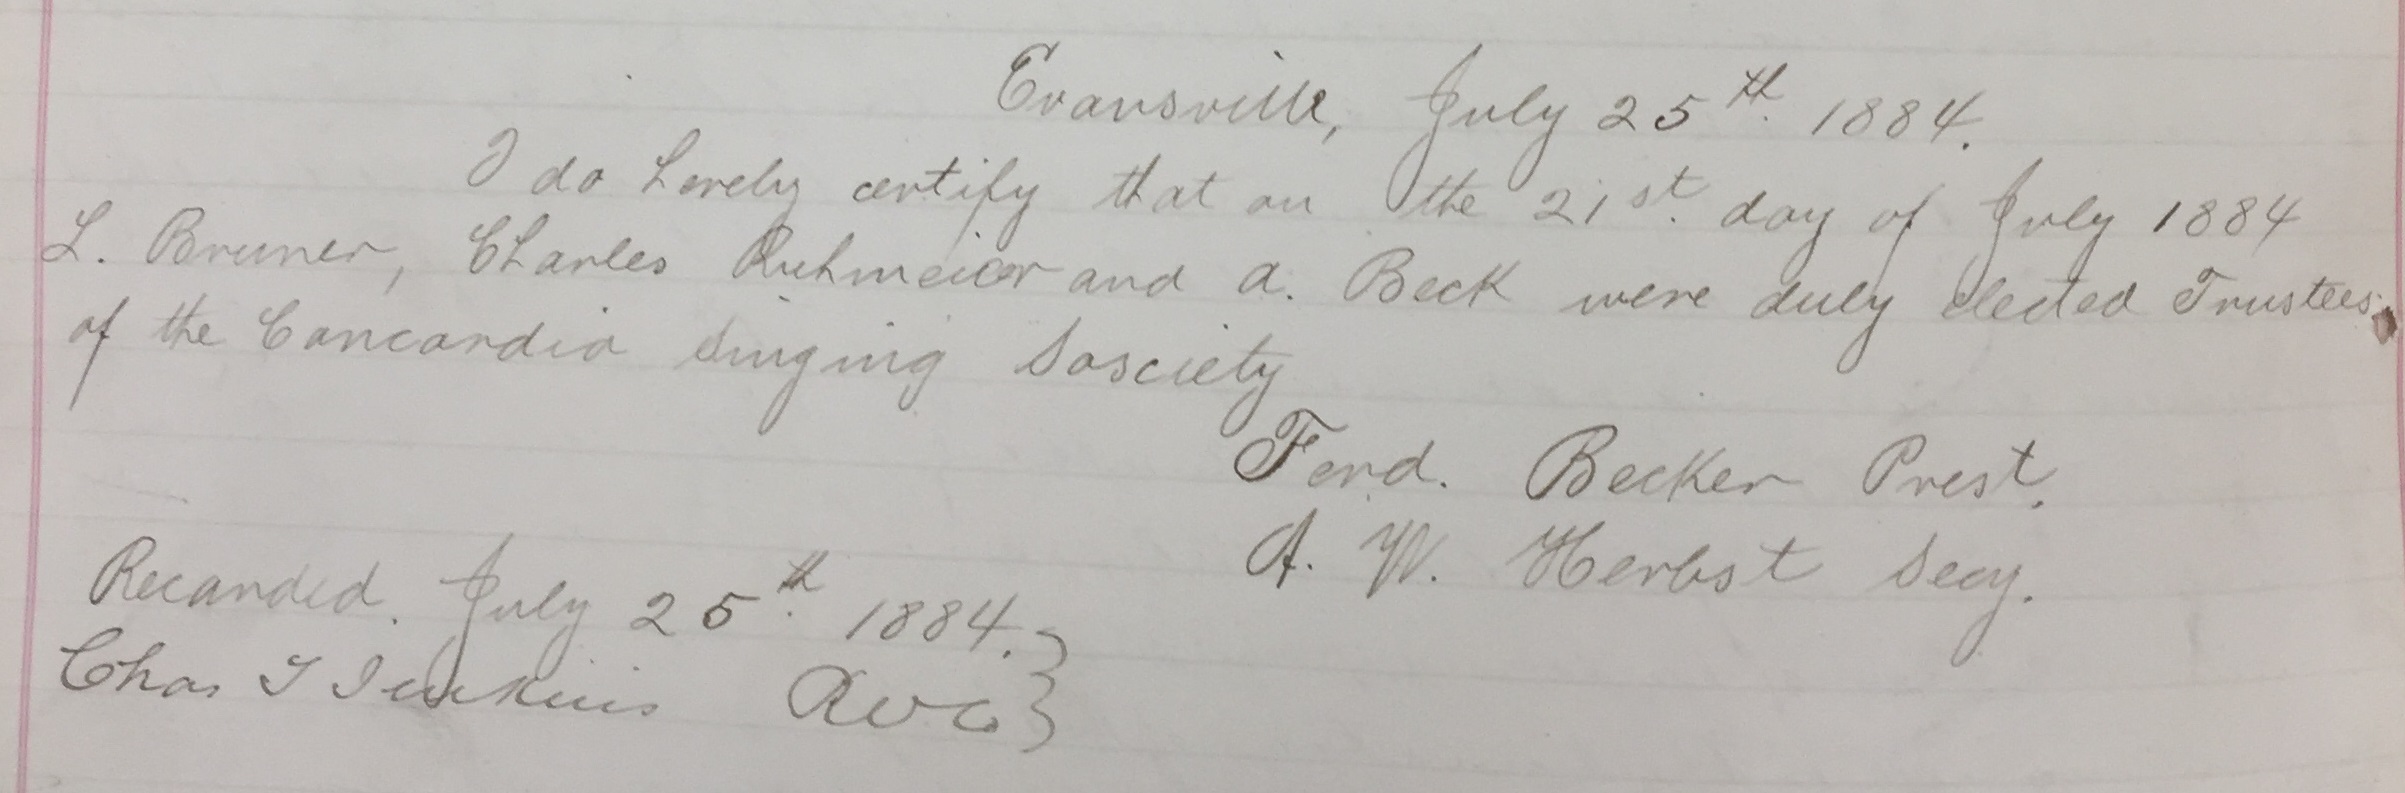 Evansville, July 25th. 1884.
I do hereby certify that on the 21st. day of July 1884
L. Bruner, Charles Ruhmeier and A. Beck were duly elected Trustees
of the Concordia Singing Sosciety
Ferd. Becker Prest.
A. W. Herbst Secy.
Recorded. July 25th. 1884.
Chas T Jenkins